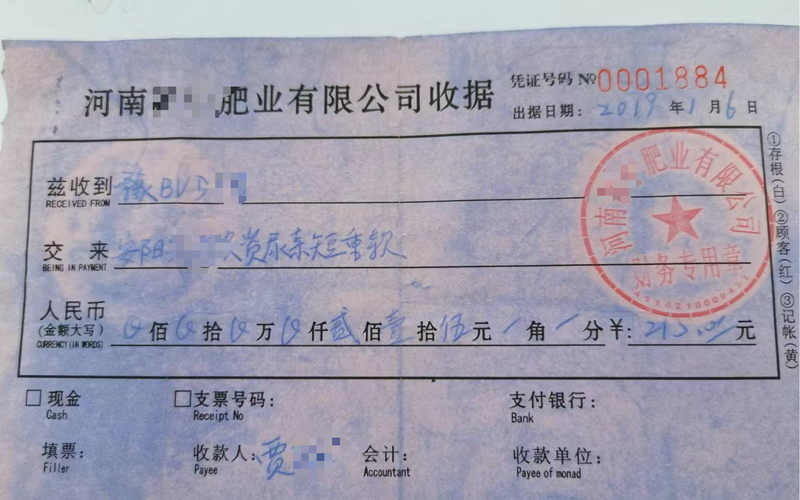 河南 肥业有限公司收据
凭证号码 №0001884
出据日期: 2019年1月6日
兹收到 豫BVD
RECEIVED FROM
交来 安阳 尿素短重款
BEING IN PAYMENT
人民币 佰 拾 万 仟贰佰壹拾伍元 角 分 ¥: 215.00元
(金额大写)
CURRENCY(IN WORDS)
河南 肥业有限公司
财务专用章
①存根(白)②顾客(红)③记帐(黄)
□现金 □支票号码: 支付银行:
Cash Receipt No Bank
填票: 收款人: 贾 会计: 收款单位:
Filler Payee Accountant Payee of monad